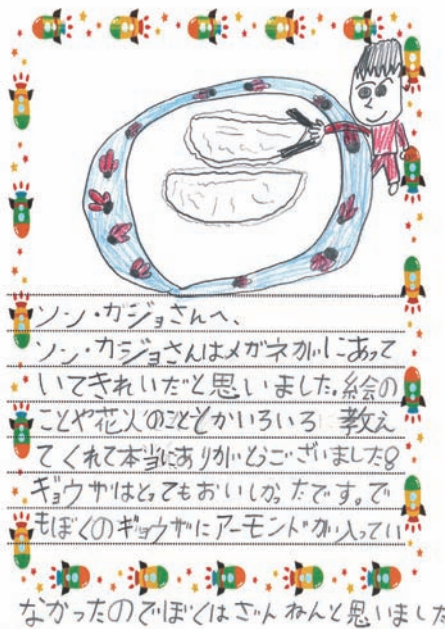 ソン・カジョさんへ、
ソン・カジョさんはメガネがにあって
いてきれいだと思いました。絵の
ことや花火のこととかいろいろ 教え
てくれて本当にありがとうございました。
ギョウザはとってもおいしかったです。で
もぼくのギョウザにアーモンドが入ってい
なかったのでぼくはざんねんと思いました